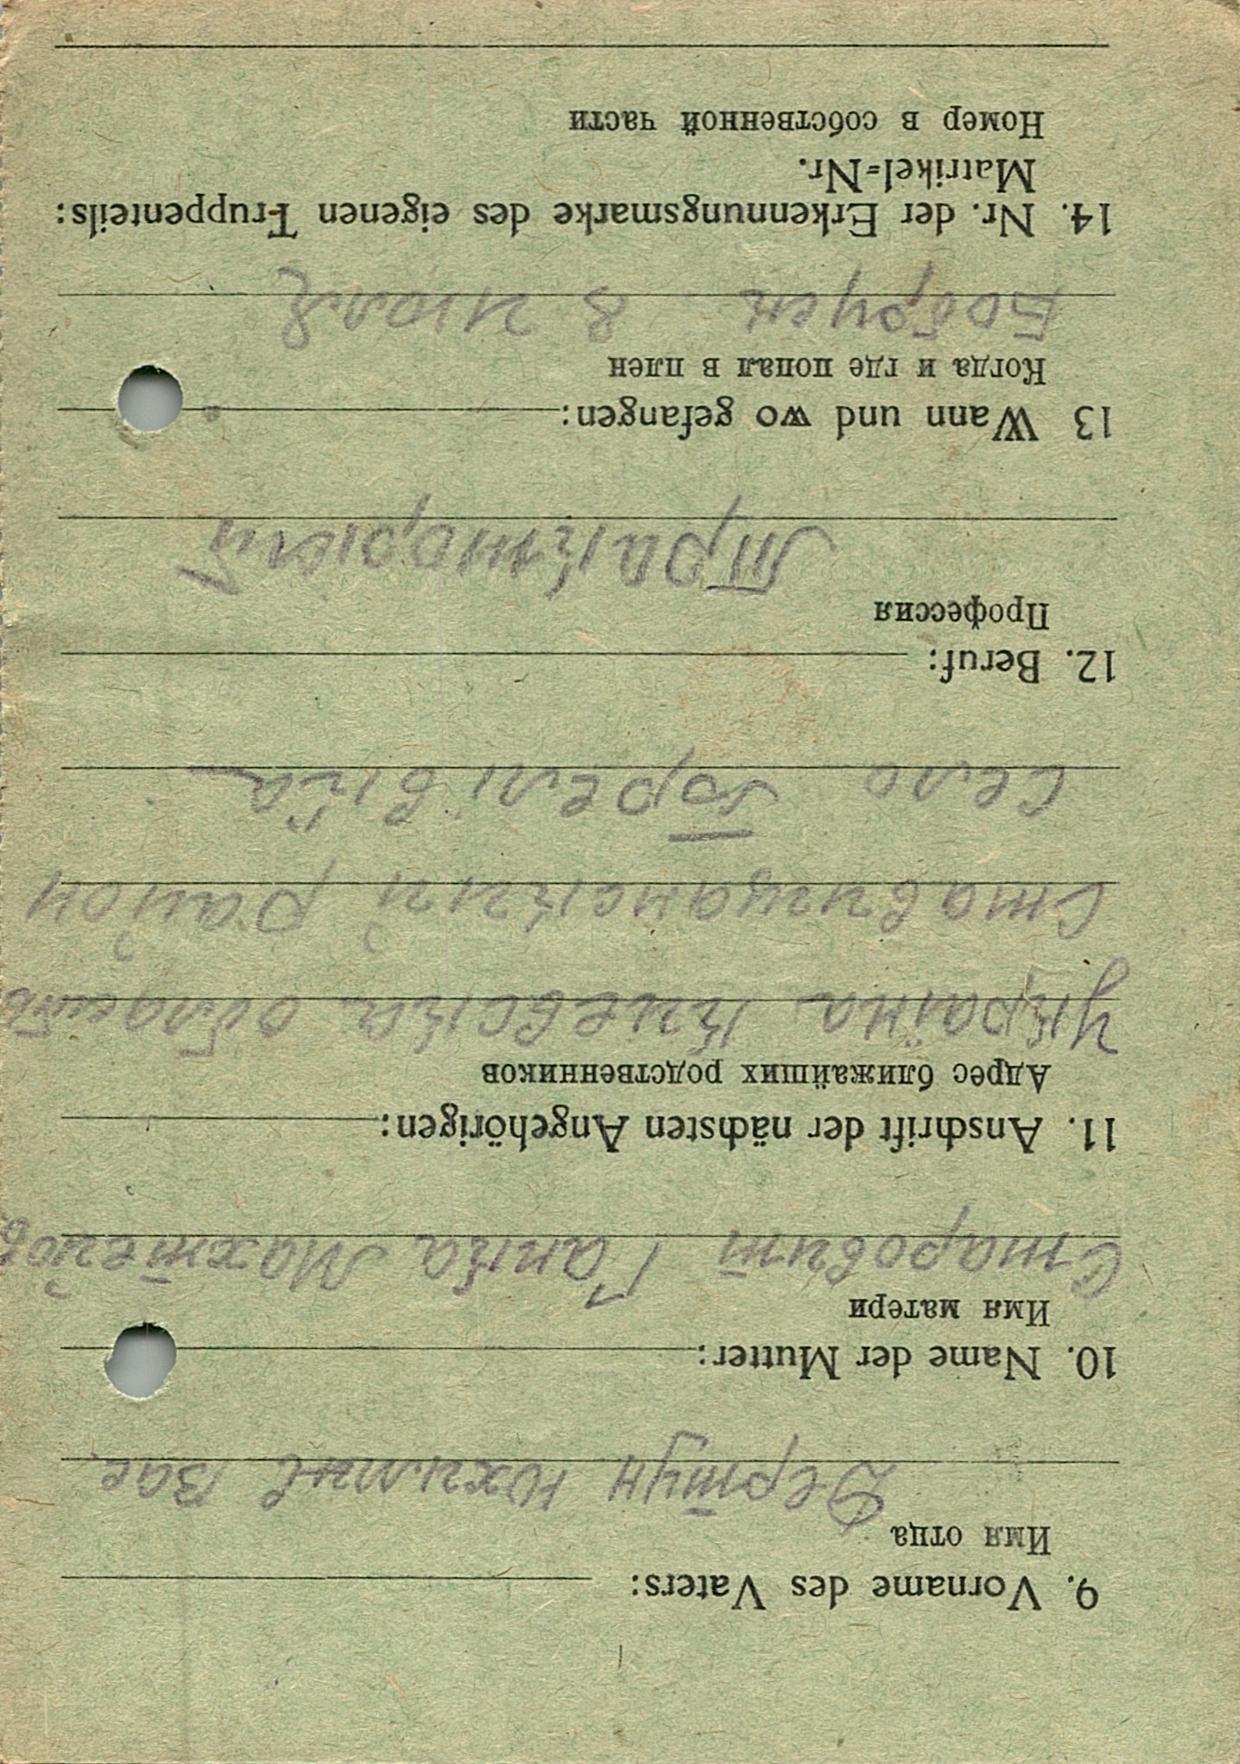 9. Vorname des Vaters:
Имя отца
Дертун Юхимнє Вас.
10. Name der Mutter:
Имя матери
Старовит Ганка Махтейов
11. Anschrift der nächsten Angehörigen:
Адрес ближайших родственников
Україна Киевска область
Ставищанский район
село Горелівка
12. Beruf:
Профессия
Тракторист
13 Wann und wo gefangen:
Когда и где попал в плен
в июля
14. Nr. der Erkennungsmarke des eigenen Truppenteils:
Matrikel=Nr.
Номер в собственной части